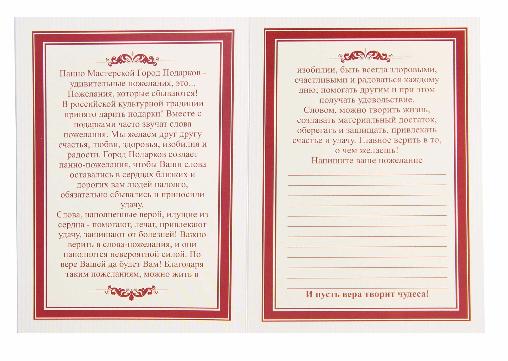 Панно Мастерской Город Подарков -
удивительные пожелания, это...
Пожелания, которые сбываются!
В российской культурной традиции
принято дарить подарки! Вместе с
подарками часто звучат слова
пожелания. Мы желаем друг другу
счастья, любви, здоровья, изобилия и
радости. Город Подарков создает
панно-пожелания, чтобы Ваши слова
оставались в сердцах близких и
дорогих вам людей надолго,
обязательно сбывались и приносили
удачу.
Слова, наполненные верой, идущие из
сердца - помогают, лечат, привлекают
удачу, защищают от болезней! Важно
верить в слова-пожелания, и они
наполнятся невероятной силой. По
вере Вашей да будет Вам! Благодаря
таким пожеланиям, можно жить в
изобилии, быть всегда здоровыми,
счастливыми и радоваться каждому
дню, помогать другим и при этом
получать удовольствие.
Словом, можно творить жизнь,
создавать материальный достаток,
оберегать и защищать, привлекать
счастье и удачу. Главное верить в то,
о чем желаешь!
Напишите ваше пожелание
И пусть вера творит чудеса!